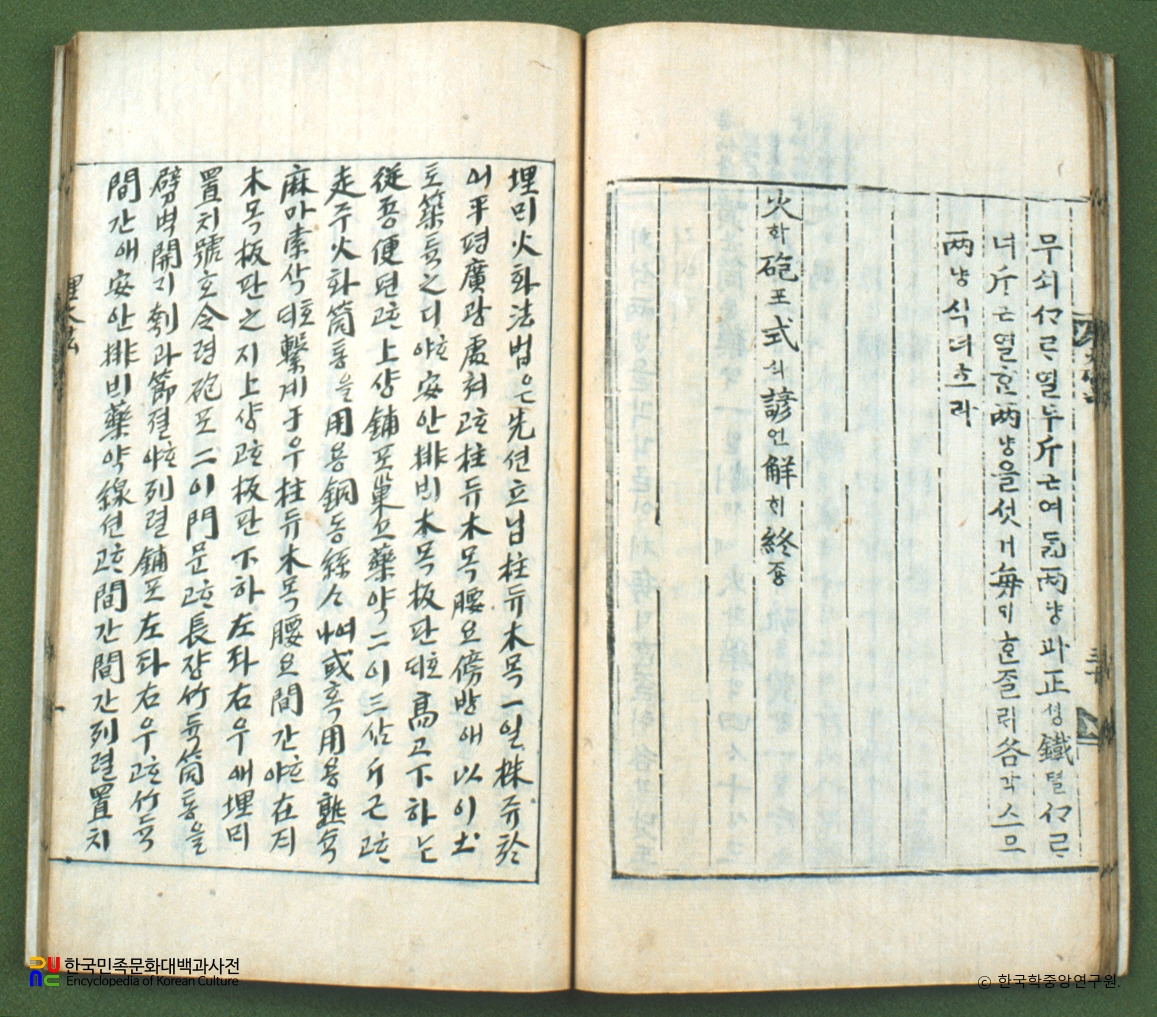 무쇠ᄀᆞᄅᆞ열두斤근여ᄃᆞᆲ兩냥과正셩鐵텰ᄀᆞᄅᆞ
너斤근열ᄒᆞᆫ兩냥을섯거每ᄆᆡᄒᆞᆫ줄릐各각스므
兩냥식녀흐라
火화砲포式식諺언解ᄒᆡ終죵
埋ᄆᆡ火화法법은先션立닙柱듀木목一일株쥬於
어平평廣광處쳐ᄒᆞ고柱듀木목腰요傍방애以이土
토築튝之디ᄒᆞ야安안排ᄇᆡ木목板판호ᄃᆡ高고下하ᄂᆞᆫ
從죵便편ᄒᆞ고上샹鋪포藥약二이三삼斤근ᄒᆞ고
走주火화筒통을用용銅동絲ᄉᆞ나여或혹用용熟슉
麻마索삭호ᄃᆡ繫계于우柱듀木목腰요間간ᄒᆞ야在ᄌᆡ
木목板판之지上샹ᄒᆞ고板판下하左좌右우애埋ᄆᆡ
置치號호令령砲포二이門문ᄒᆞ고長쟝竹듁筒통을
劈벽開ᄀᆡ刳과節졀ᄒᆞ야列렬鋪포左좌右우ᄒᆞ고竹듁
間간애安안排ᄇᆡ藥약線션ᄒᆞ고間간間간列렬置치
埋火法
一
한국민족문화대백과사전
Encyclopedia of Korean Culture
© 한국학중앙연구원.